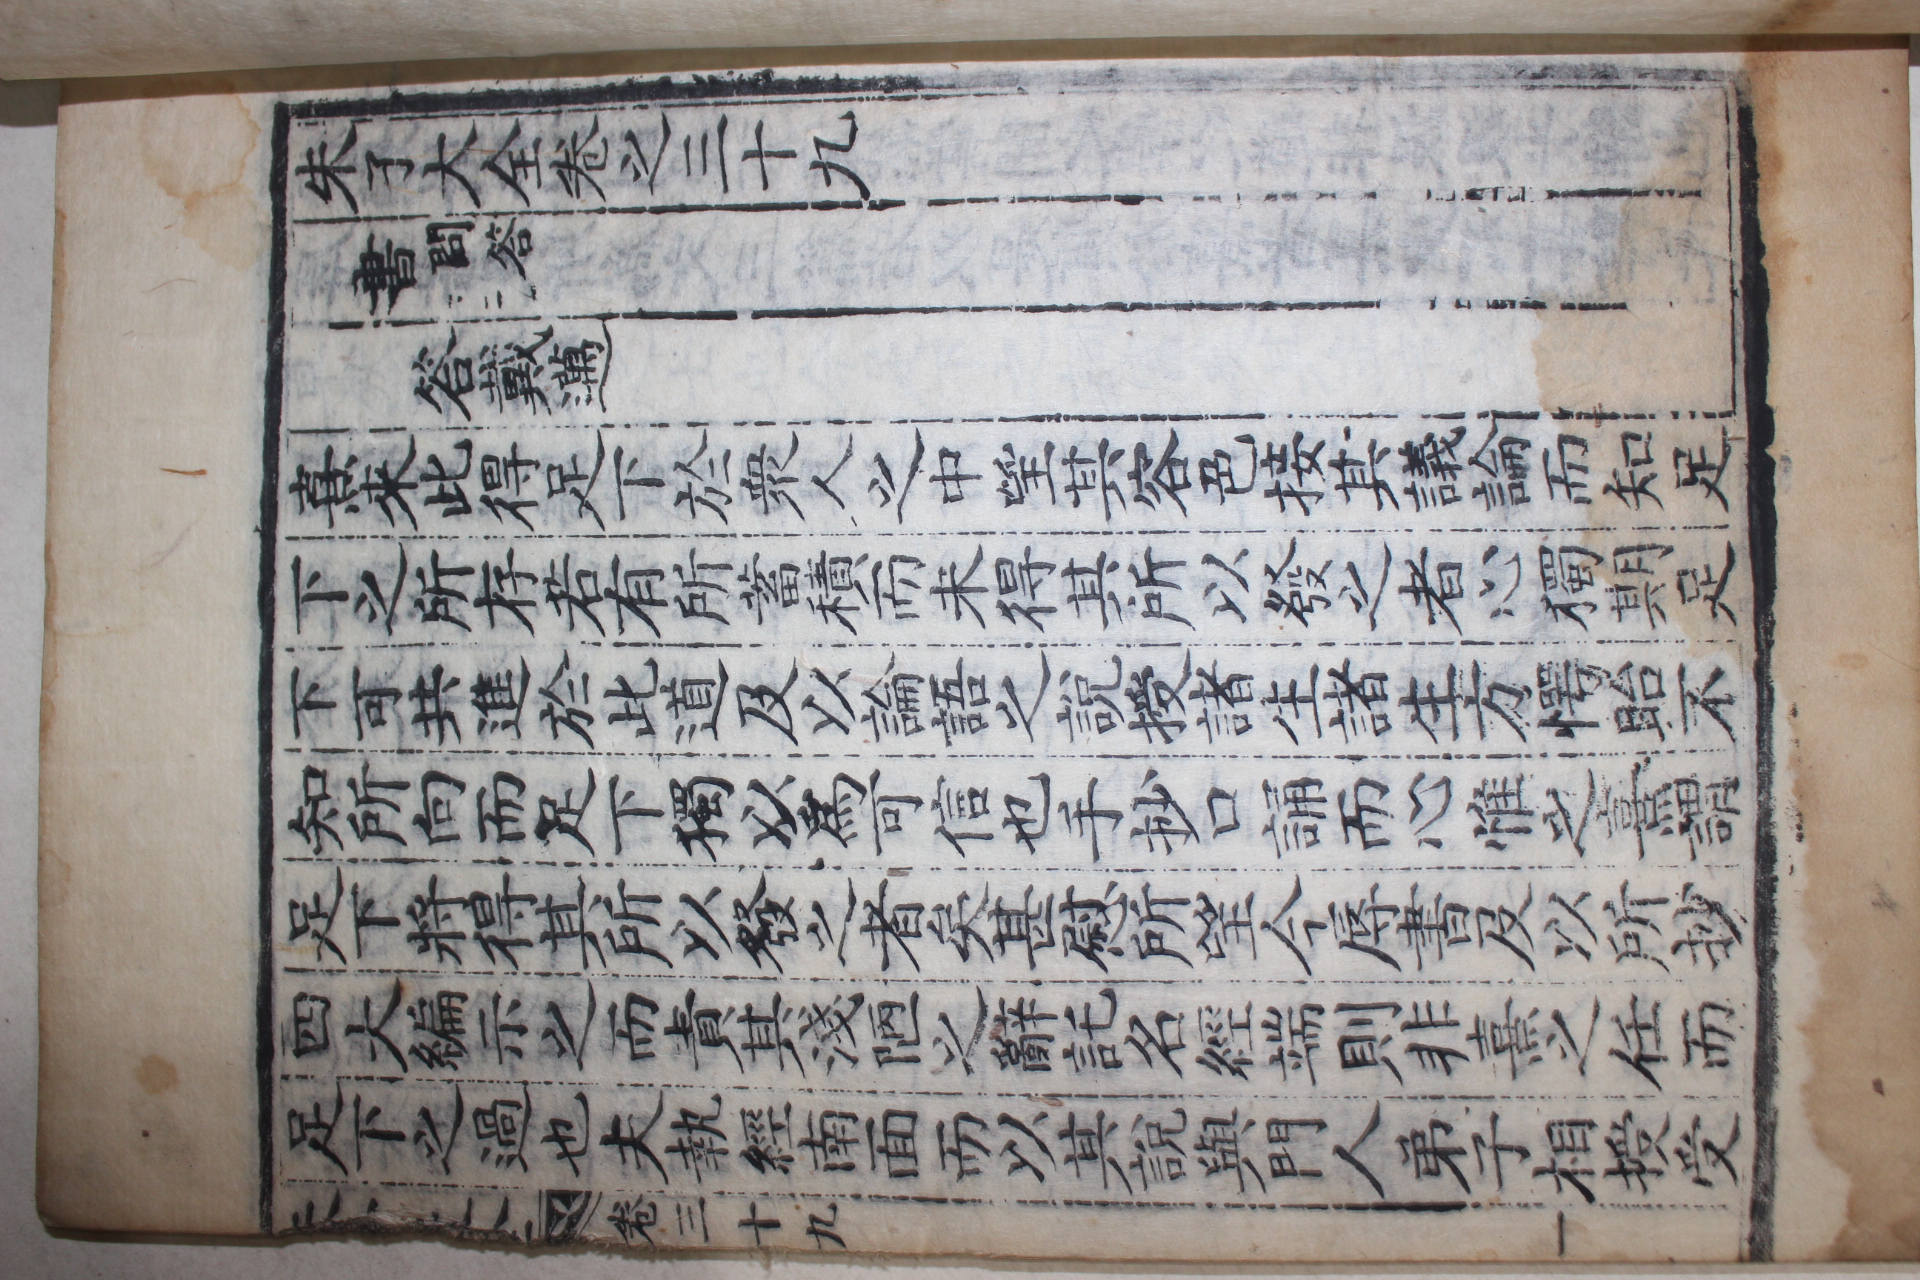 朱子大全卷之三十九
書問答
答戴邁
熹來此得足下於衆人之中望其容色接其議論而知足
下之所存若有所蓄積而未得其所以發之者心獨期足
下可共進於此道及以論語之說授諸生諸生方愕眙不
知所向而足下獨以爲可信也手抄口誦而心惟之熹謂
足下將得其所以發之者矣甚慰所望今辱書及以所抄
四大編示之而責其淺陋之辭託名經端則非熹之任而
足下之過也夫執經南面而以其說與門人弟子相授受
卷三十九 一